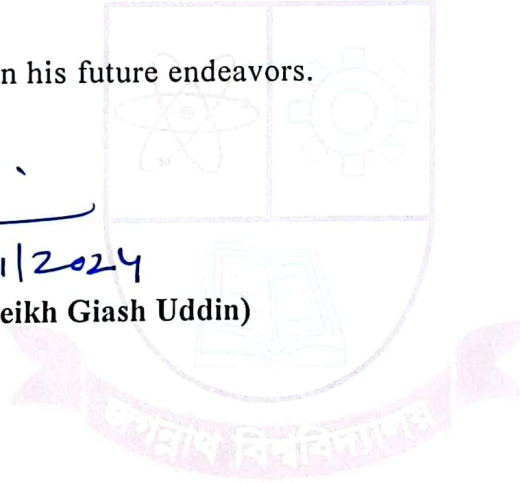 n his future endeavors.
1/2024
eikh Giash Uddin)
জগন্নাথ বিশ্ববিদ্যালয়